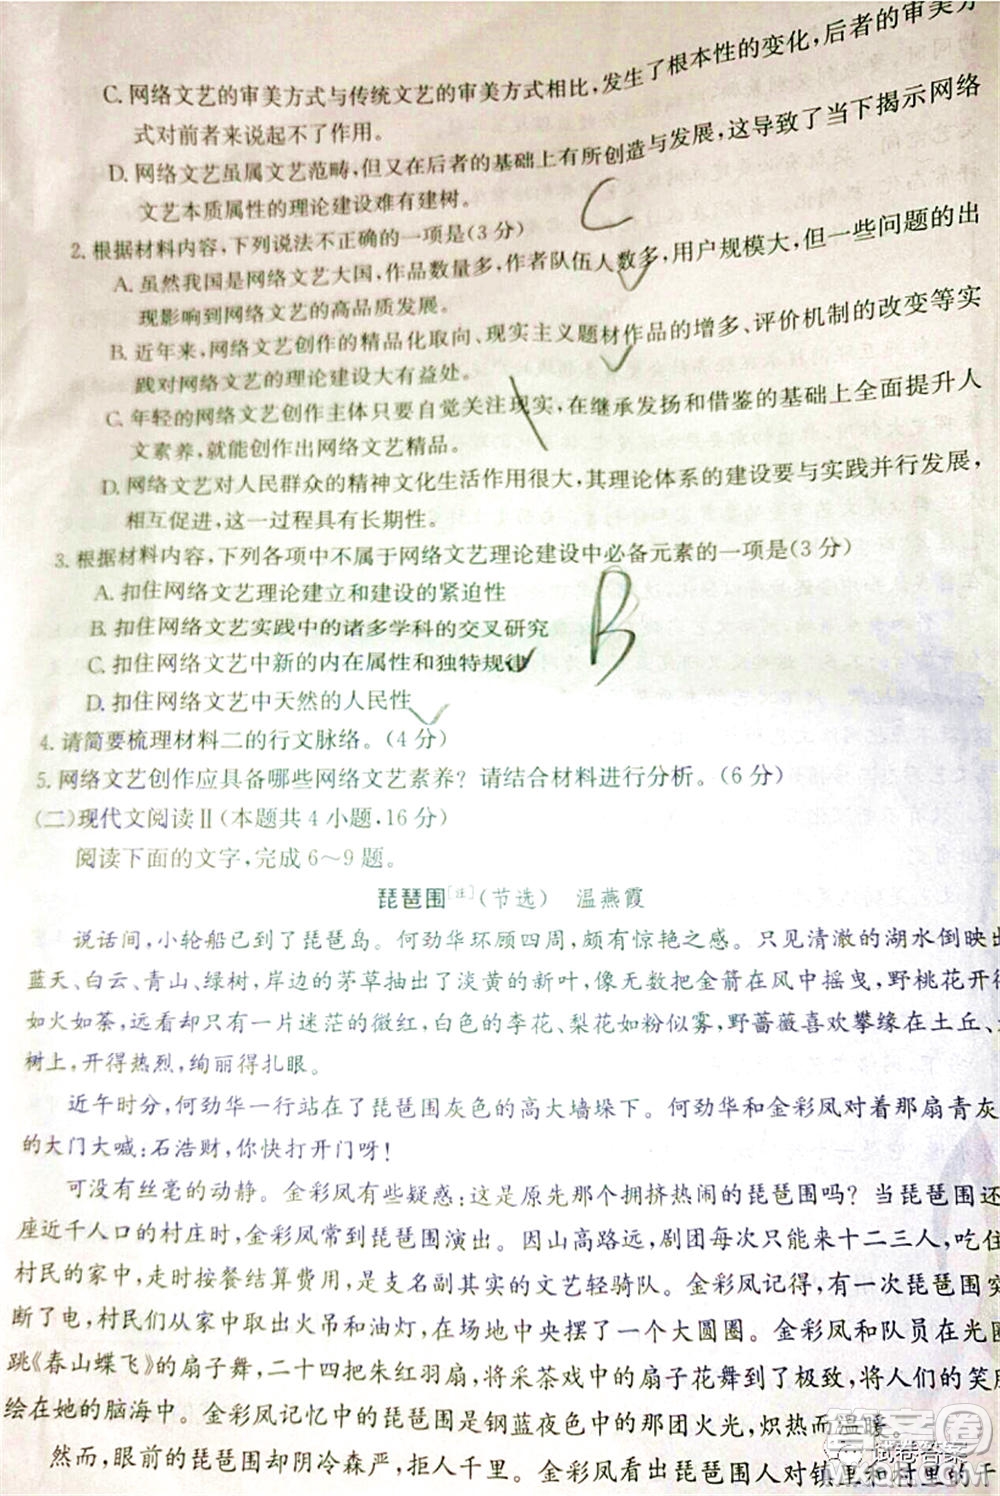 C. 网络文艺的审美方式与传统文艺的审美方式相比,发生了根本性的变化,后者的审美方
式对前者来说起不了作用。
D. 网络文艺虽属文艺范畴,但又在后者的基础上有所创造与发展,这导致了当下揭示网络
文艺本质属性的理论建设难有建树。
C
2. 根据材料内容,下列说法不正确的一项是(3分)
A. 虽然我国是网络文艺大国,作品数量多,作者队伍人数多,用户规模大,但一些问题的出
现影响到网络文艺的高品质发展。
B. 近年来,网络文艺创作的精品化取向、现实主义题材作品的增多、评价机制的改变等实
践对网络文艺的理论建设大有益处。
C. 年轻的网络文艺创作主体只要自觉关注现实,在继承发扬和借鉴的基础上全面提升人
文素养,就能创作出网络文艺精品。
D. 网络文艺对人民群众的精神文化生活作用很大,其理论体系的建设要与实践并行发展,
相互促进,这一过程具有长期性。
3. 根据材料内容,下列各项中不属于网络文艺理论建设中必备元素的一项是(3分)
A. 扣住网络文艺理论建立和建设的紧迫性
B. 扣住网络文艺实践中的诸多学科的交叉研究
B
C. 扣住网络文艺中新的内在属性和独特规律
D. 扣住网络文艺中天然的人民性
4. 请简要梳理材料二的行文脉络。(4分)
5. 网络文艺创作应具备哪些网络文艺素养?请结合材料进行分析。(6分)
(二)现代文阅读Ⅱ(本题共4小题,16分)
阅读下面的文字,完成6~9题。
琵琶围[注](节选) 温燕霞
说话间,小轮船已到了琵琶岛。何劲华环顾四周,颇有惊艳之感。只见清澈的湖水倒映出
蓝天、白云、青山、绿树,岸边的茅草抽出了淡黄的新叶,像无数把金箭在风中摇曳,野桃花开得
如火如荼,远看却只有一片迷茫的微红,白色的李花、梨花如粉似雾,野蔷薇喜欢攀缘在土丘、
树上,开得热烈,绚丽得扎眼。
近午时分,何劲华一行站在了琵琶围灰色的高大墙垛下。何劲华和金彩凤对着那扇青灰
的大门大喊:石浩财,你快打开门呀!
可没有丝毫的动静。金彩凤有些疑惑:这是原先那个拥挤热闹的琵琶围吗?当琵琶围还
座近千人口的村庄时,金彩凤常到琵琶围演出。因山高路远,剧团每次只能来十二三人,吃住
村民的家中,走时按餐结算费用,是支名副其实的文艺轻骑队。金彩凤记得,有一次琵琶围突
断了电,村民们从家中取出火吊和油灯,在场地中央摆了一个大圆圈。金彩凤和队员在光圈
跳《春山蝶飞》的扇子舞,二十四把朱红羽扇,将采茶戏中的扇子花舞到了极致,将人们的笑
绘在她的脑海中。金彩凤记忆中的琵琶围是钢蓝夜色中的那团火光,炽热而温暖。
然而,眼前的琵琶围却阴冷森严,拒人千里。金彩凤见琵琶围人对镇里和村里的干
答案卷
试卷答案